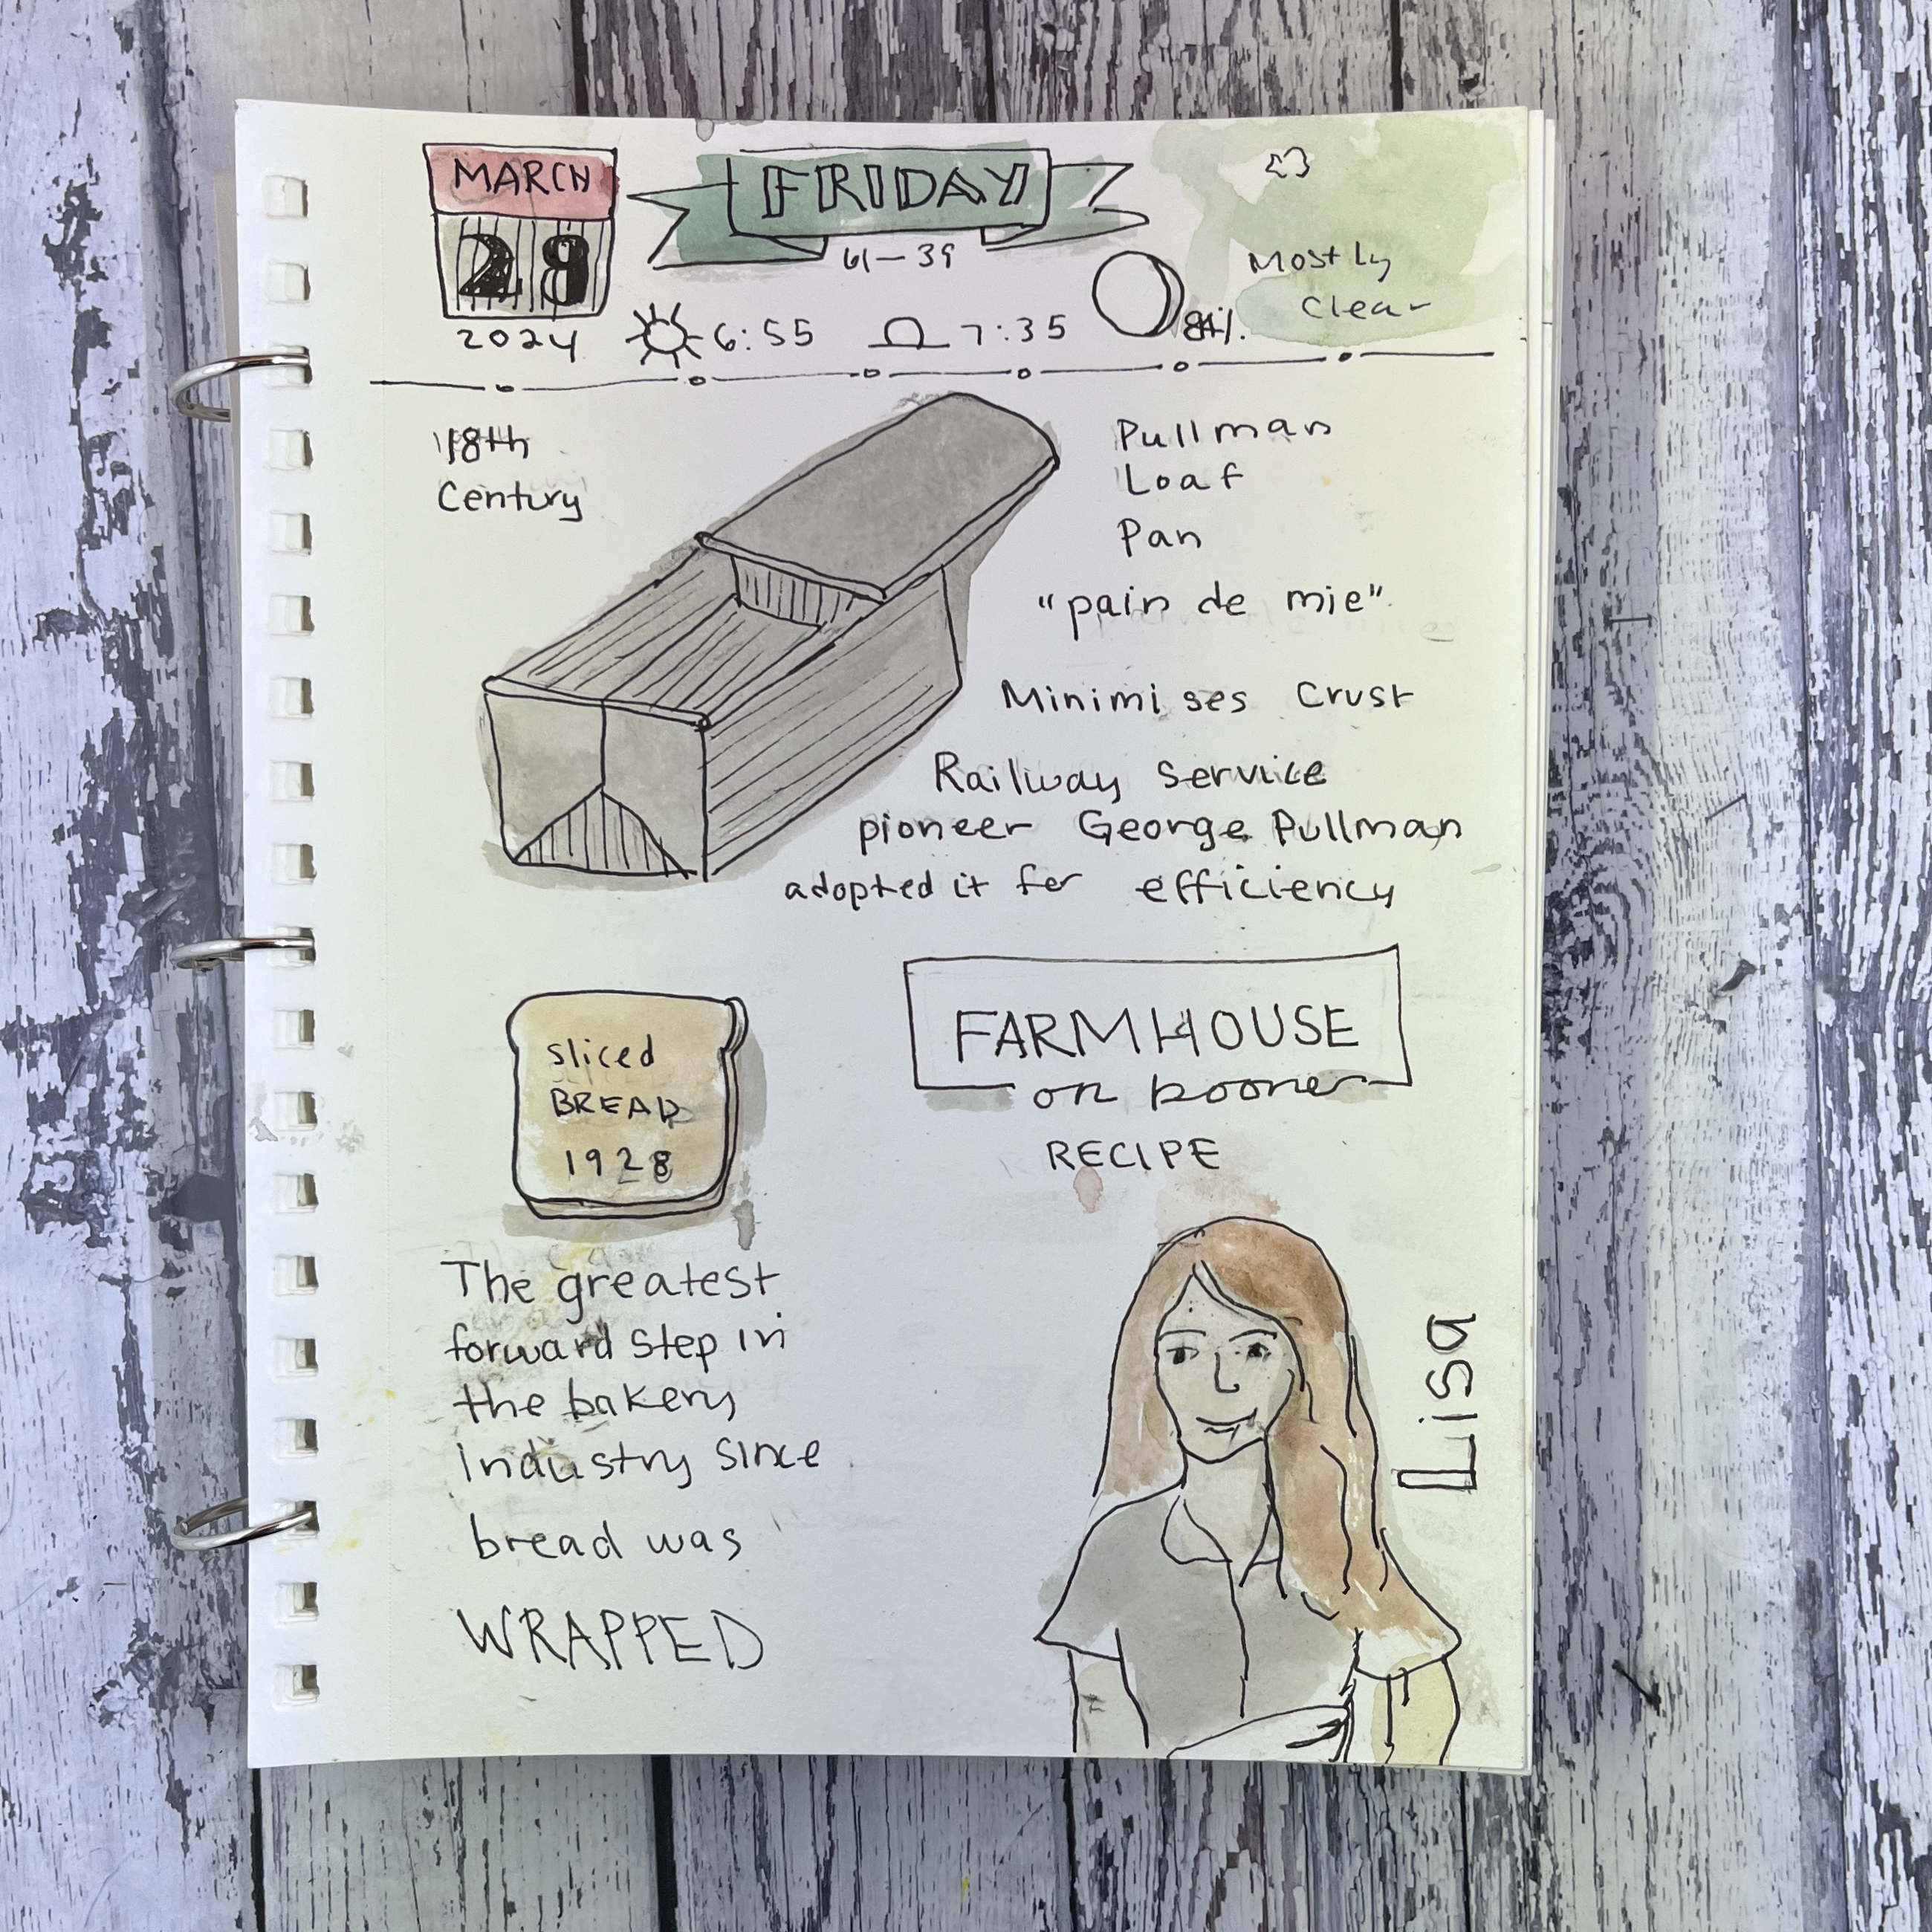 MARCH
29
2024
FRIDAY
61-39
6:55
7:35
84%
Mostly
Clear
18th
Century
Pullman
Loaf
Pan
"pain de mie"
Minimises Crust
Railway Service
pioneer George Pullman
adopted it for efficiency
sliced
BREAD
1928
FARMHOUSE
on boone
RECIPE
The greatest
forward step in
the bakery
industry since
bread was
WRAPPED
Lisa